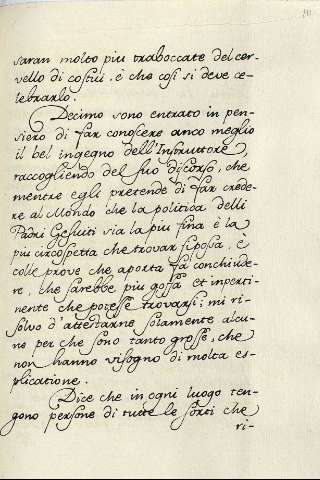 saran molto piu traboccate del cer-
vello di costui. è che così si deve ce-
lebrarlo.
Decimo sono entrato in pen-
siero di far conoscere anco meglio
il bel ingegno dell'Instruttore,
raccogliendo del suo discorso, che
mentre egli pretende di far crede-
re al Mondo che la politica delli
Padri Gesuiti sia la piu fina è la
piu circospetta che trovar si possa, è
colle prove che aporta fà conchiude-
re, che sarebbe piu goffa et inperti-
nente che potesse trovarsi; mi ri-
solvo d'attestarne solamente alcu-
ne per che sono tanto grosse, che
non hanno visogno di molta es-
plicatione.
Dice che in ogni luogo ten-
gono persone di tutte le sorti che
ri-